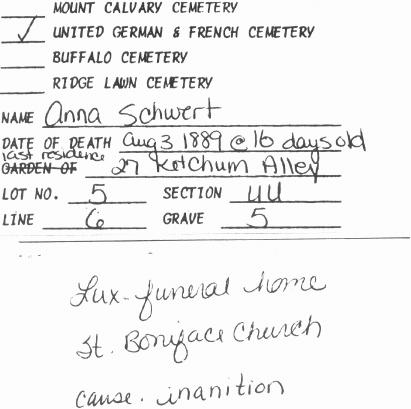 MOUNT CALVARY CEMETERY
✓ UNITED GERMAN & FRENCH CEMETERY
BUFFALO CEMETERY
RIDGE LAWN CEMETERY
NAME Anna Schwert
DATE OF DEATH Aug 3 1889 @ 16 days old
last residence
GARDEN OF 27 Ketchum Alley
LOT NO. 5 SECTION UU
LINE 6 GRAVE 5
Lux funeral home
St. Boniface Church
cause. inanition